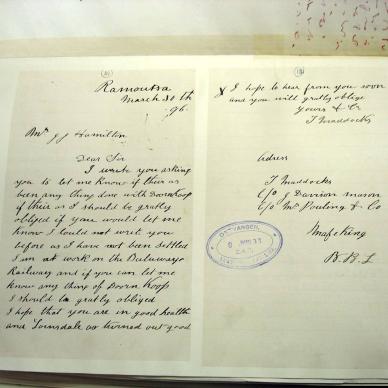 Ramoutsa
March 30th
96.
Mr J J Hamillin
Dear Sir
I write you asking
you to let me know if their as
been any thing done with Doornkoop
if their as I should be gratly
obliged if you would let me
know I Could not write you
before as I have not been settled
I am at work on the Buluwayo
Railway and if you can let me
know any thing of Doorn Koop
I should be gratly obliged
I hope that you are in good health
and Lonsdale as turned out good
X I hope to hear from you soon
and you will gratly oblige
yours &c
J Maddocks
Adress
J Maddocks
c/o G Davison mason
c/o Mr Pauling & Co
Mafeking
B. B. L
ONTVANGEN